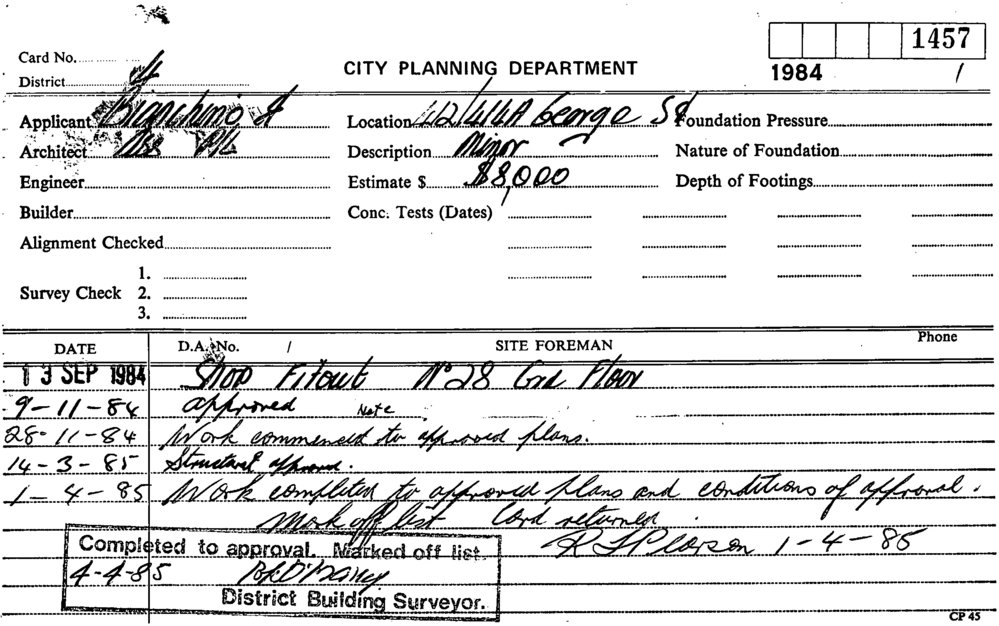 1457
Card No.
CITY PLANNING DEPARTMENT
1984 /
District
Applicant Bianchino & Location 412/414A George St Foundation Pressure
Architect Description Minor Nature of Foundation
Engineer Estimate $ $8,000 Depth of Footings
Builder Conc. Tests (Dates)
Alignment Checked
1.
Survey Check 2.
3.
DATE D.A. No. / SITE FOREMAN Phone
13 SEP 1984 Shop Fitout No 28 Grd Floor
9-11-84 approved Note
28-11-84 Work commenced to approved plans.
14-3-85 Structural approved.
1-4-85 Work completed to approved plans and conditions of approval.
Mark off list Card returned
Completed to approval. Marked off list. Pearson 1-4-85
4-4-85
District Building Surveyor.
CP 45